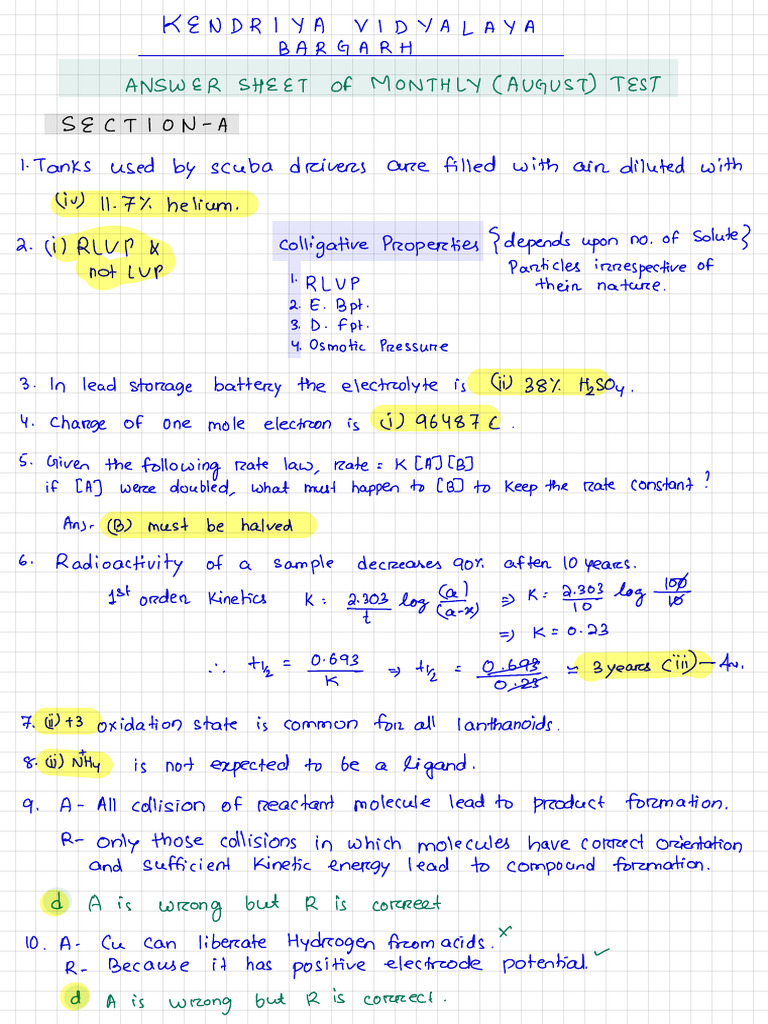 KENDRIYA VIDYALAYA
BARGARH
ANSWER SHEET of MONTHLY (AUGUST) TEST
SECTION-A
1. Tanks used by scuba drivers are filled with air diluted with
(iv) 11.7% helium.
2. (i) RLVP &
not LVP
Colligative Properties {depends upon no. of Solute}
Particles irrespective of
their nature.
1. RLVP
2. E. Bpt.
3. D. Fpt.
4. Osmotic Pressure
3. In lead storage battery the electrolyte is (ii) 38% H₂SO₄.
4. Charge of one mole electron is (i) 96487 C.
5. Given the following rate law, rate = K [A][B]
if [A] were doubled, what must happen to [B] to keep the rate constant?
Ans- (B) must be halved
6. Radioactivity of a sample decreases 90% after 10 years.
1st order Kinetics K = 2.303/t log (a)/(a-x) ⇒ K = 2.303/10 log 100/10
⇒ K = 0.23
∴ t1/2 = 0.693/K ⇒ t1/2 = 0.693/0.23 = 3 years (iii) – An.
7. (ii) +3 oxidation state is common for all lanthanoids.
8. (ii) N⁺H₄ is not expected to be a ligand.
9. A- All collision of reactant molecule lead to product formation.
R- only those collisions in which molecules have correct orientation
and sufficient Kinetic energy lead to compound formation.
d A is wrong but R is correct
10. A- Cu can liberate Hydrogen from acids. ×
R- Because it has positive electrode potential. ✓
d A is wrong but R is correct.